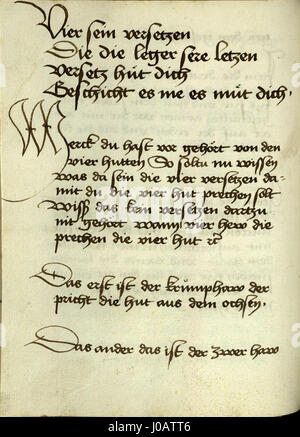 Vier sein versetzen
Die die leger sere letzen
Versetz hüt dich
Geschicht es me es müt dich ·
Merck du hast vor gehört von den
vier hutten So soltu nu wissen
was da sein die vier versetzen da-
mit du die vier hut prechen solt
Wiß das kein versetzen dartzu
mit gehört wann vier hew die
prechen die vier hut rc
Das erst ist der krümphaw der
pricht die hut aus dem ochsen ·
Das ander das ist der zwer haw
alamy
www.alamy.com - J0ATT6